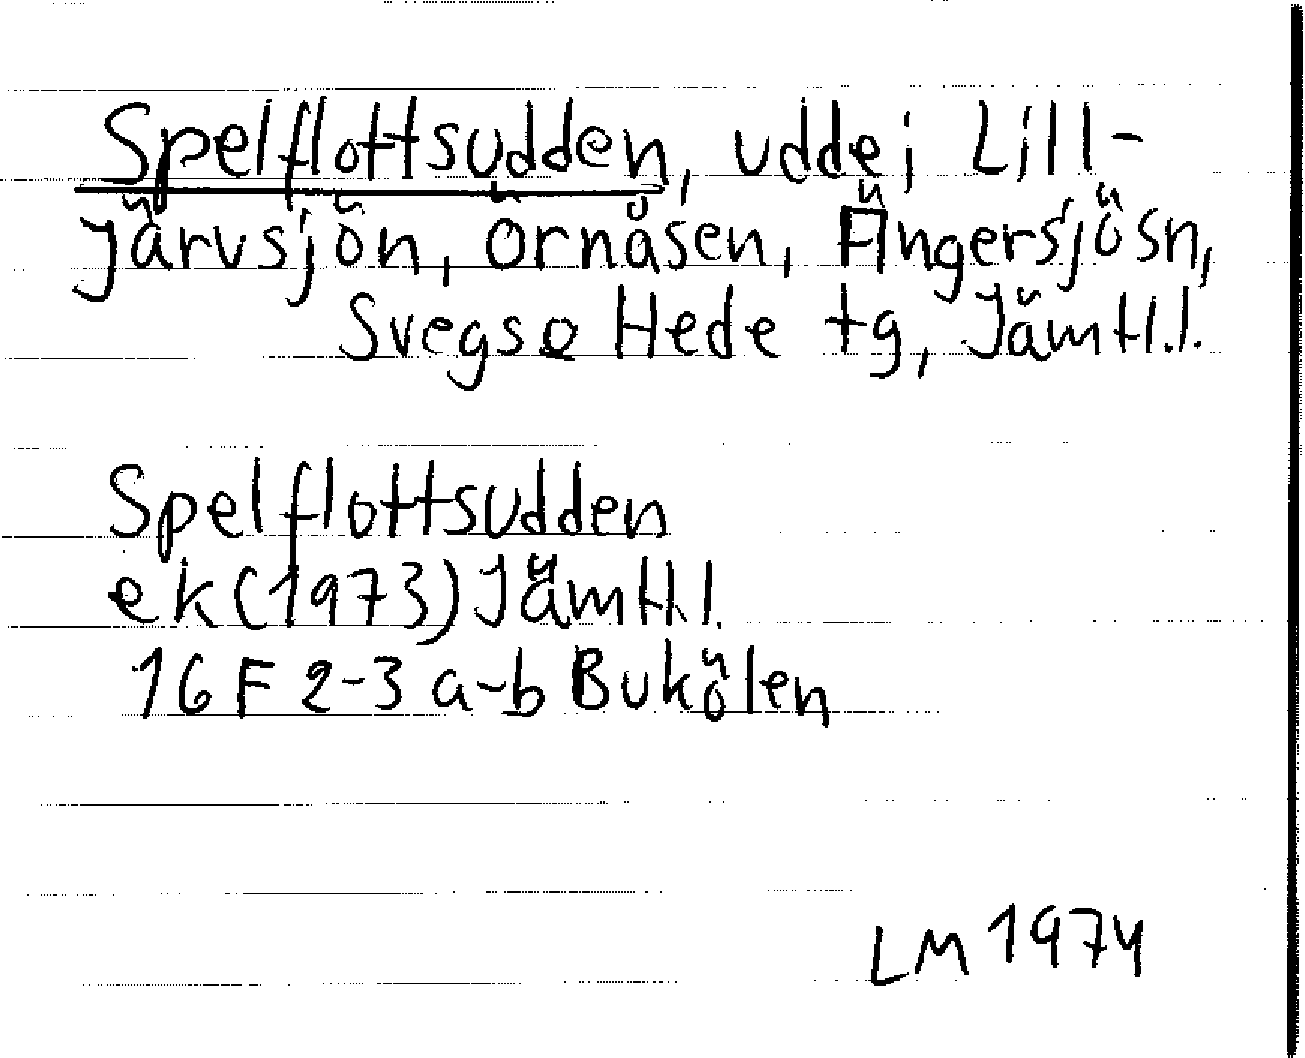 Spelflottsudden, udde i Lill-
järvsjön, Örnåsen, Ängersjösn,
Svegs o Hede tg, Jämtl.l.
Spelflottsudden
ek (1973) Jämtl.l.
16 F 2-3 a-b Bukölen
LM 1974